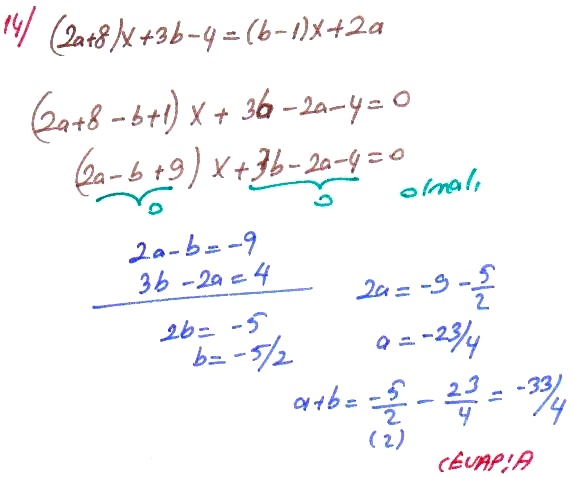 14/ (2a+8)x+3b-4=(b-1)x+2a
(2a+8-b+1)x+3b-2a-4=0
(2a-b+9)x+3b-2a-4=0
0 0 olmalı
2a-b=-9
3b-2a=4
2b=-5
b=-5/2
2a=-9-5/2
a=-23/4
a+b=-5/2-23/4=-33/4
(2)
CEVAP:A